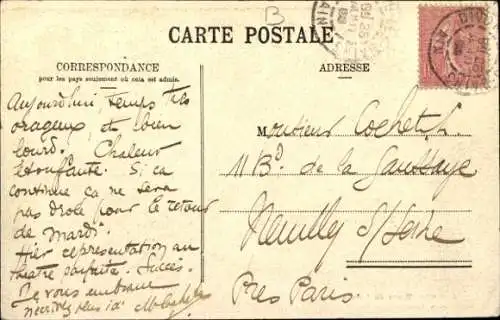 B
CARTE POSTALE
CORRESPONDANCE
pour les pays seulement où cela est admis.
ADRESSE
AIN
AIN DIV
Aujourd'hui temps très
orageux, et bien
lourd. Chaleur
étouffante. Si ca
continue ça ne sera
pas drole pour le retour
de Mardi.
Hier représentation au
théatre Succès.
Je vous embrasse
M
Monsieur Cochet
11 Bd de la Saussaye
Neuilly s/Seine
Près Paris